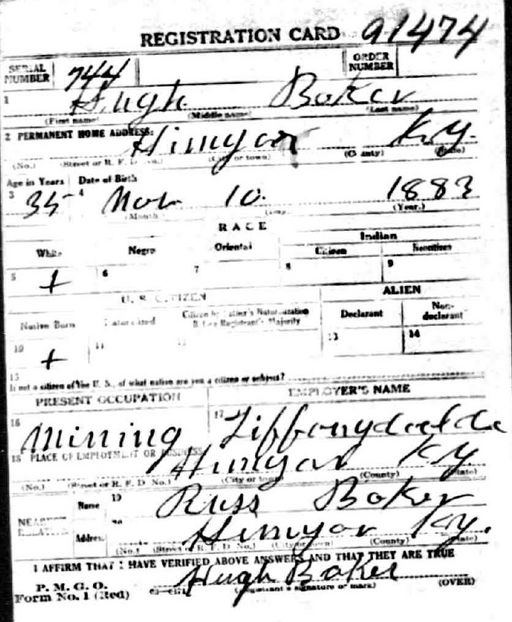 REGISTRATION CARD 91474
SERIAL NUMBER 744 ORDER NUMBER
1 Hugh Baker
(First name) (Middle name) (Last name)
2 PERMANENT HOME ADDRESS: Himyar Ky
(No.) (Street or R. F. D. No.) (City or town) (County) (State)
Age in Years Date of Birth
3 35 4 Nov 10 1883
(Month) (Day) (Year)
RACE
White Negro Oriental Indian
Citizen Noncitizen
5 + 6 7 8 9
U. S. CITIZEN ALIEN
Native Born Naturalized Citizen by Father's Naturalization Before Registrant's Majority Declarant Non-declarant
10 + 11 12 13 14
15 If not a citizen of the U. S., of what nation are you a citizen or subject?
PRESENT OCCUPATION EMPLOYER'S NAME
16 Mining 17
18 PLACE OF EMPLOYMENT OR BUSINESS Himyar Ky
(No.) (Street or R. F. D. No.) (City or town) (County) (State)
NEAREST RELATIVE Name 19 Russ Baker
Address 20 Himyar Ky.
(No.) (Street or R. F. D. No.) (City or town) (County) (State)
I AFFIRM THAT I HAVE VERIFIED ABOVE ANSWERS AND THAT THEY ARE TRUE
P. M. G. O.
Form No. 1 (Red) Hugh Baker
(Registrant's signature or mark) (OVER)